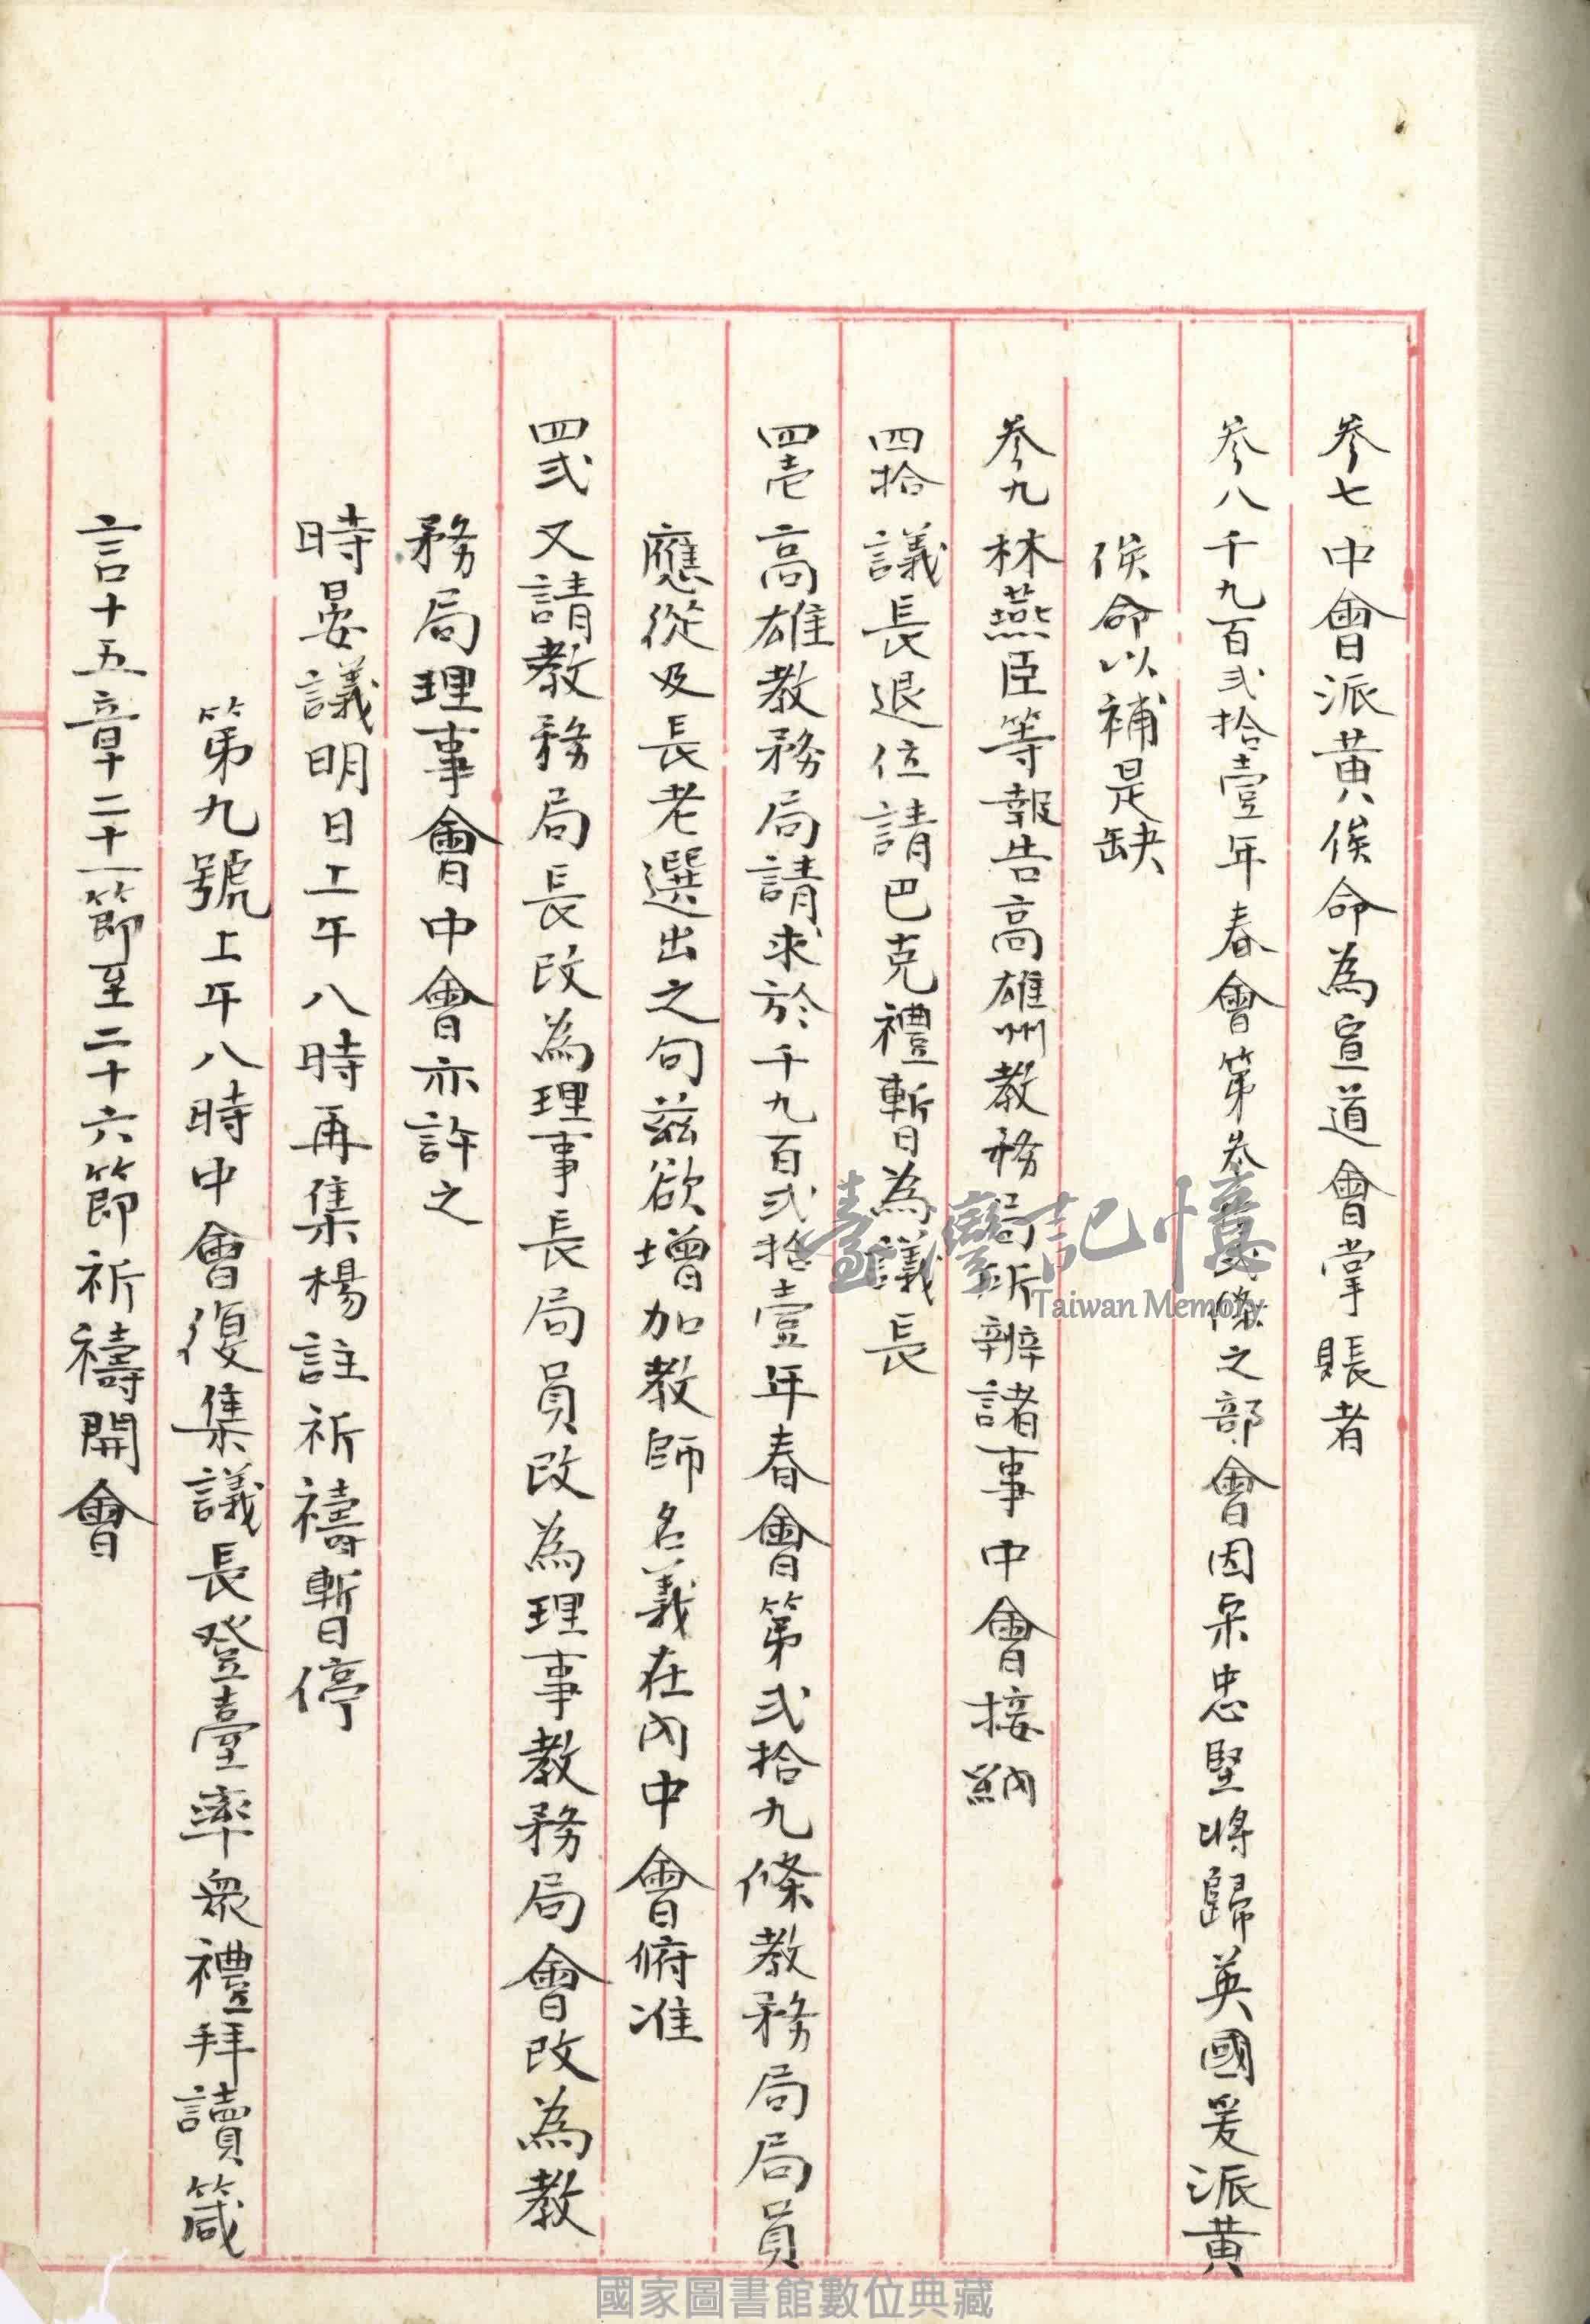 参七 中會派黃俟命為宣道會掌賬者
参八 千九百弍拾壹年春會第参弍條之部會因宋忠堅將歸英國爰派黃
俟命以補是缺
参九 林燕臣等報告高雄州教務局所辦諸事中會接納
四拾 議長退位請巴克禮暫為議長
四壱 高雄教務局請求於千九百弍拾壹年春會第弍拾九條教務局局員
應從及長老選出之句茲欲增加教師名義在內中會俯准
四弍 又請教務局長改為理事長局員改為理事教務局會改為教
務局理事會中會亦許之
時晏議明日上午八時再集楊註祈禱暫停
第九號上午八時中會復集議長登臺率眾禮拜讀箴
言十五章二十一節至二十六節祈禱開會
臺灣記憶
Taiwan Memory
國家圖書館數位典藏